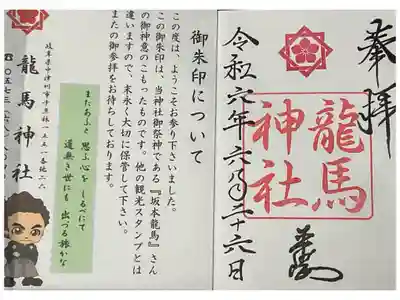 奉拝
龍馬
神社
令和六年六月二十六日
御朱印について
この度は、ようこそお参り下さいました。
この御朱印は、当神社御祭神である『坂本龍馬』さん
の御神意のこもったものです。他の観光スタンプとは
違いますので、末永く大切に保管して下さい。
またの御参拝をお待ちしております。
またあふと 思ふ心を しるべにて
道無き世にも 出づる旅かな
龍馬神社